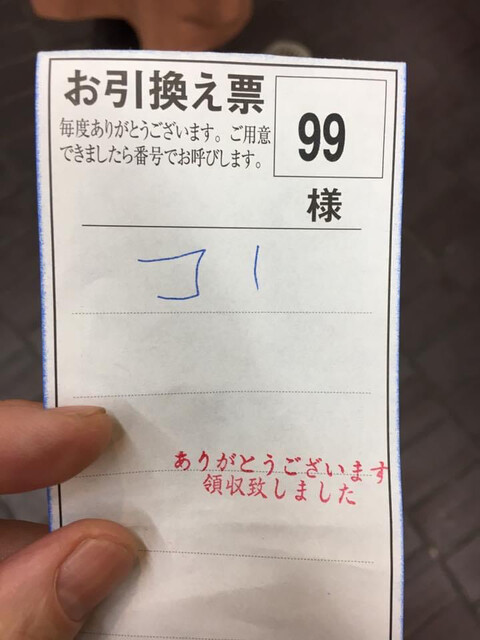 お引換え票
99
毎度ありがとうございます。ご用意
できましたら番号でお呼びします。
様
コ1
ありがとうございます
領収致しました